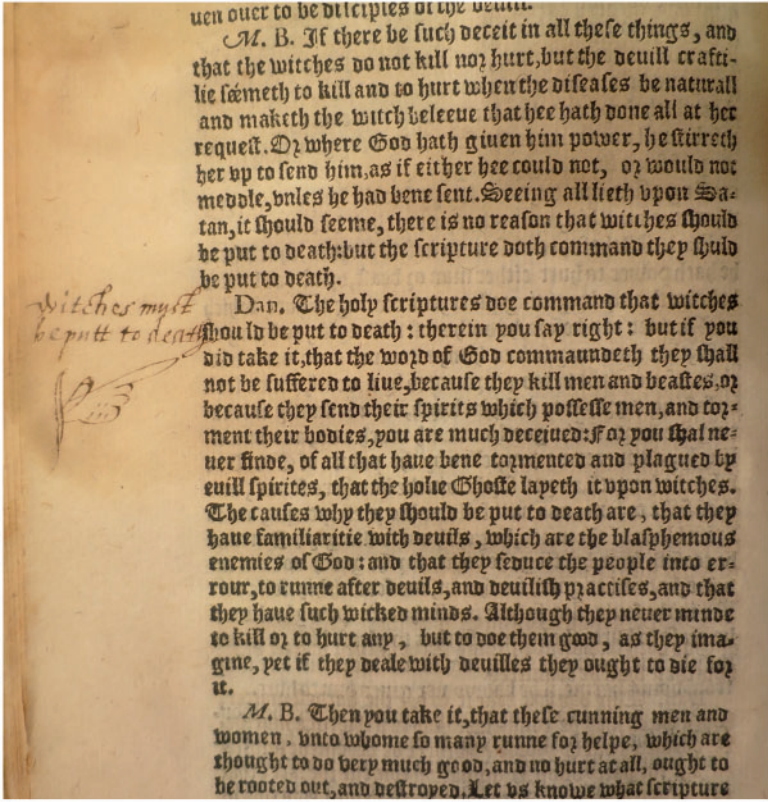 uen ouer to be disciples of the deuill.
M. B. If there be such deceit in all these things, and
that the witches do not kill nor hurt, but the deuill crafti-
lie séemeth to kill and to hurt when the diseases be naturall
and maketh the witch beleeue that hee hath done all at her
request. Or where God hath giuen him power, he stirreth
her vp to send him, as if either hee could not, or would not
meddle, vnles he had bene sent. Seeing all lieth vpon Sa-
tan, it should seeme, there is no reason that witches should
be put to death: but the scripture doth command they shuld
be put to death.
witches must
be putt to death
Dan. The holy scriptures doe command that witches
should be put to death: therein you say right: but if you
did take it, that the word of God commaundeth they shall
not be suffered to liue, because they kill men and beastes, or
because they send their spirits which possesse men, and tor-
ment their bodies, you are much deceiued: For you shal ne-
uer finde, of all that haue bene tormented and plagued by
euill spirites, that the holie Ghoste layeth it vpon witches.
The causes why they should be put to death are, that they
haue familiaritie with deuils, which are the blasphemous
enemies of God: and that they seduce the people into er-
rour, to runne after deuils, and deuilish practises, and that
they haue such wicked minds. Although they neuer minde
to kill or to hurt any, but to doe them good, as they ima-
gine, yet if they deale with deuilles they ought to die for
it.
M. B. Then you take it, that these cunning men and
women, vnto whome so many runne for helpe, which are
thought to do very much good, and no hurt at all, ought to
be rooted out, and destroyed. Let vs knowe what scripture